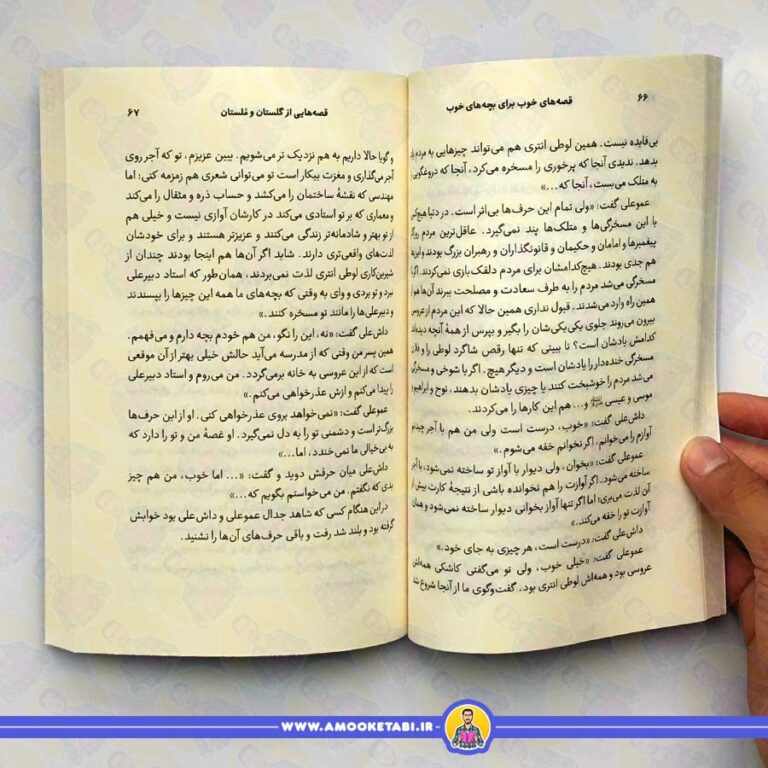 ۶۶ قصه‌های خوب برای بچه‌های خوب
بی‌فایده نیست. همین لوطی انتری هم می‌تواند چیزهایی به مردم
بدهد. ندیدی آنجا که پرخوری را مسخره می‌کرد، آنجا که دروغگویی
به متلک می‌بست، آنجا که...»
عموعلی گفت: «ولی تمام این حرف‌ها بی‌اثر است. در دنیا هیچ‌کس
با این مسخرگی‌ها و متلک‌ها پند نمی‌گیرد. عاقل‌ترین مردم
پیغمبرها و امامان و حکیمان و قانونگذاران و رهبران بزرگ بودند و این‌ها
هم جدی بودند. هیچ‌کدامشان برای مردم دلقک بازی نمی‌کردند. اگر
مسخرگی می‌شد مردم را به طرف سعادت و مصلحت ببرند آن‌ها هم از
همین راه وارد می‌شدند. قبول نداری همین حالا که این مردم از عروسی
بیرون می‌روند جلوی یکی‌یکی‌شان را بگیر و بپرس از همهٔ آنچه دیده‌اند
کدامش یادشان است؟ تا ببینی که تنها رقص شاگرد لوطی را و فلان
مسخرگی خنده‌دار را یادشان است و دیگر هیچ. اگر با شوخی و مسخرگی
می‌شد مردم را خوشبخت کنند یا چیزی یادشان بدهند، نوح و ابراهیم و
موسی و عیسی و... هم این کارها را می‌کردند.
داش‌علی گفت: «خوب، درست است ولی من هم با آجر چیدنم
آوازم را می‌خوانم، اگر نخوانم خفه می‌شوم.»
عموعلی گفت: «بخوان، ولی دیوار با آواز تو ساخته نمی‌شود، با آجر
ساخته می‌شود. اگر آوازت را هم نخوانده باشی از نتیجهٔ کارت بیش از
آن لذت می‌بری؛ اما اگر تنها آواز بخوانی دیوار ساخته نمی‌شود و همان
آوازت تو را خفه می‌کند.»
داش‌علی گفت: «درست است، هر چیزی به جای خود.»
عموعلی گفت: «خیلی خوب، ولی تو می‌گفتی کاشکی همه‌اش
عروسی بود و همه‌اش لوطی انتری بود. گفت‌وگوی ما از آنجا شروع شد
قصه‌هایی از گلستان و مُلستان ۶۷
و گویا حالا داریم به هم نزدیک تر می‌شویم. ببین عزیزم، تو که آجر روی
آجر می‌گذاری و مغزت بیکار است تو می‌توانی شعری هم زمزمه کنی؛ اما
مهندسی که نقشهٔ ساختمان را می‌کشد و حساب ذره و مثقال را می‌کند
و معماری که بر تو استادی می‌کند در کارشان آوازی نیست و خیلی هم
از تو بهتر و شادمانه‌تر زندگی می‌کنند و عزیزتر هستند و برای خودشان
لذت‌های واقعی‌تری دارند. شاید اگر آن‌ها هم اینجا بودند چندان از
شیرین‌کاری لوطی انتری لذت نمی‌بردند، همان‌طور که استاد دبیرعلی
نبرد و تو بردی و وای به وقتی که بچه‌های ما همه این چیزها را بپسندند
و دبیرعلی‌ها را مانند تو مسخره کنند.»
داش‌علی گفت: «نه، این را نگو، من هم خودم بچه دارم و می‌فهمم.
همین پسر من وقتی که از مدرسه می‌آید حالش خیلی بهتر از آن موقعی
است که از این عروسی به خانه برمی‌گردد. من می‌روم و استاد دبیرعلی
را پیدا می‌کنم و ازش عذرخواهی می‌کنم.»
عموعلی گفت: «نمی‌خواهد بروی عذرخواهی کنی. او از این حرف‌ها
بزرگ‌تر است و دشمنی تو را به دل نمی‌گیرد. او غصهٔ من و تو را دارد که
به بی‌خیالی ما نمی‌خندد، اما...»
داش‌علی میان حرفش دوید و گفت: «... اما خوب، من هم چیز
بدی که نگفتم. من می‌خواستم بگویم که...»
در این هنگام کسی که شاهد جدال عموعلی و داش‌علی بود خوابش
گرفته بود و بلند شد رفت و باقی حرف‌های آن‌ها را نشنید.
WWW.AMOOKETABI.IR